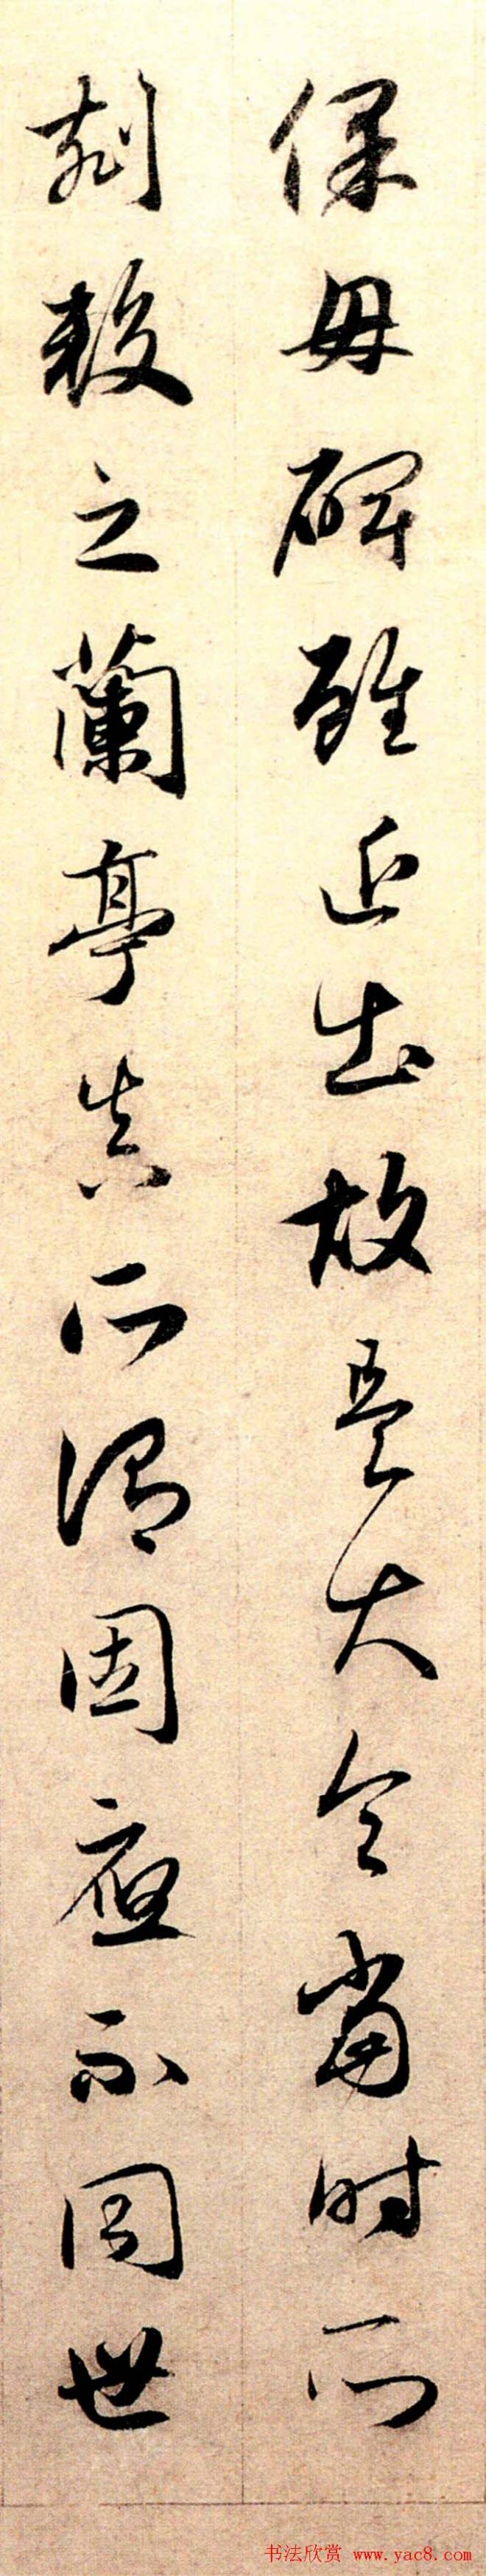 保母碑雖近出故是大令當時所
刻較之蘭亭真所謂固應不同世
书法欣赏 www.yac8.com